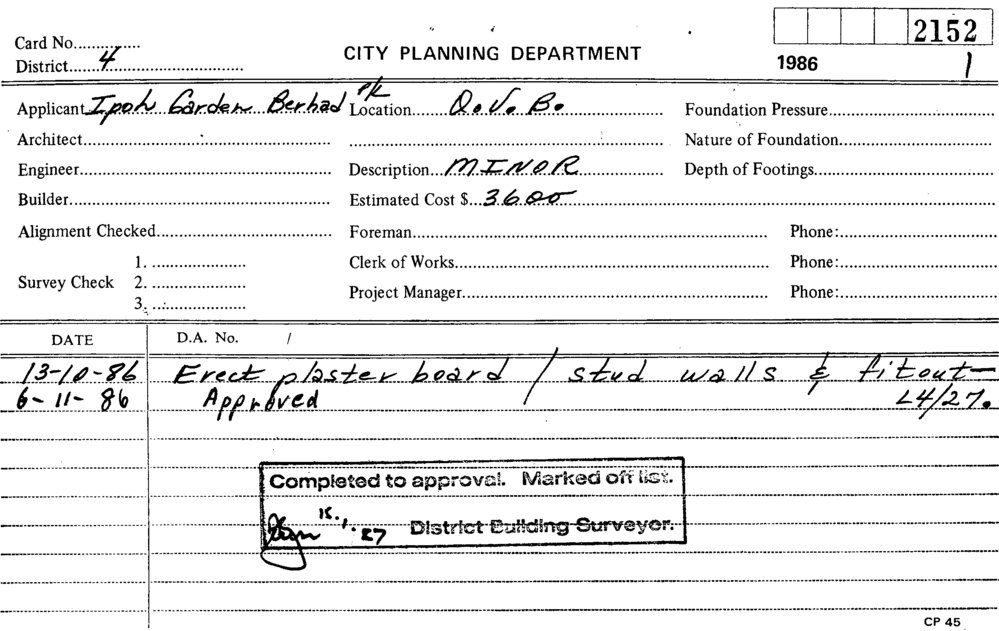 2152
Card No...............
CITY PLANNING DEPARTMENT
District......4
1986 1
Applicant Ipoh Garden Berhad P/L Location Q.V.B. Foundation Pressure
Architect Nature of Foundation
Engineer Description MINOR Depth of Footings
Builder Estimated Cost $ 3600
Alignment Checked Foreman Phone:
1. Clerk of Works Phone:
Survey Check 2.
Project Manager Phone:
3.
DATE D.A. No. /
13-10-86 Erect plaster board / stud walls & fitout—
6-11-86 Approved L4/27.
Completed to approval. Marked off list.
15.1.87 District Building Surveyor.
CP 45